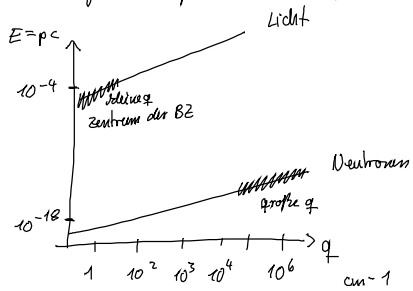 Licht
E=pc
10^-4
kleine q
Zentrum der BZ
Neutronen
große q
10^-18
q
1 10^2 10^3 10^4 10^6
cm-1